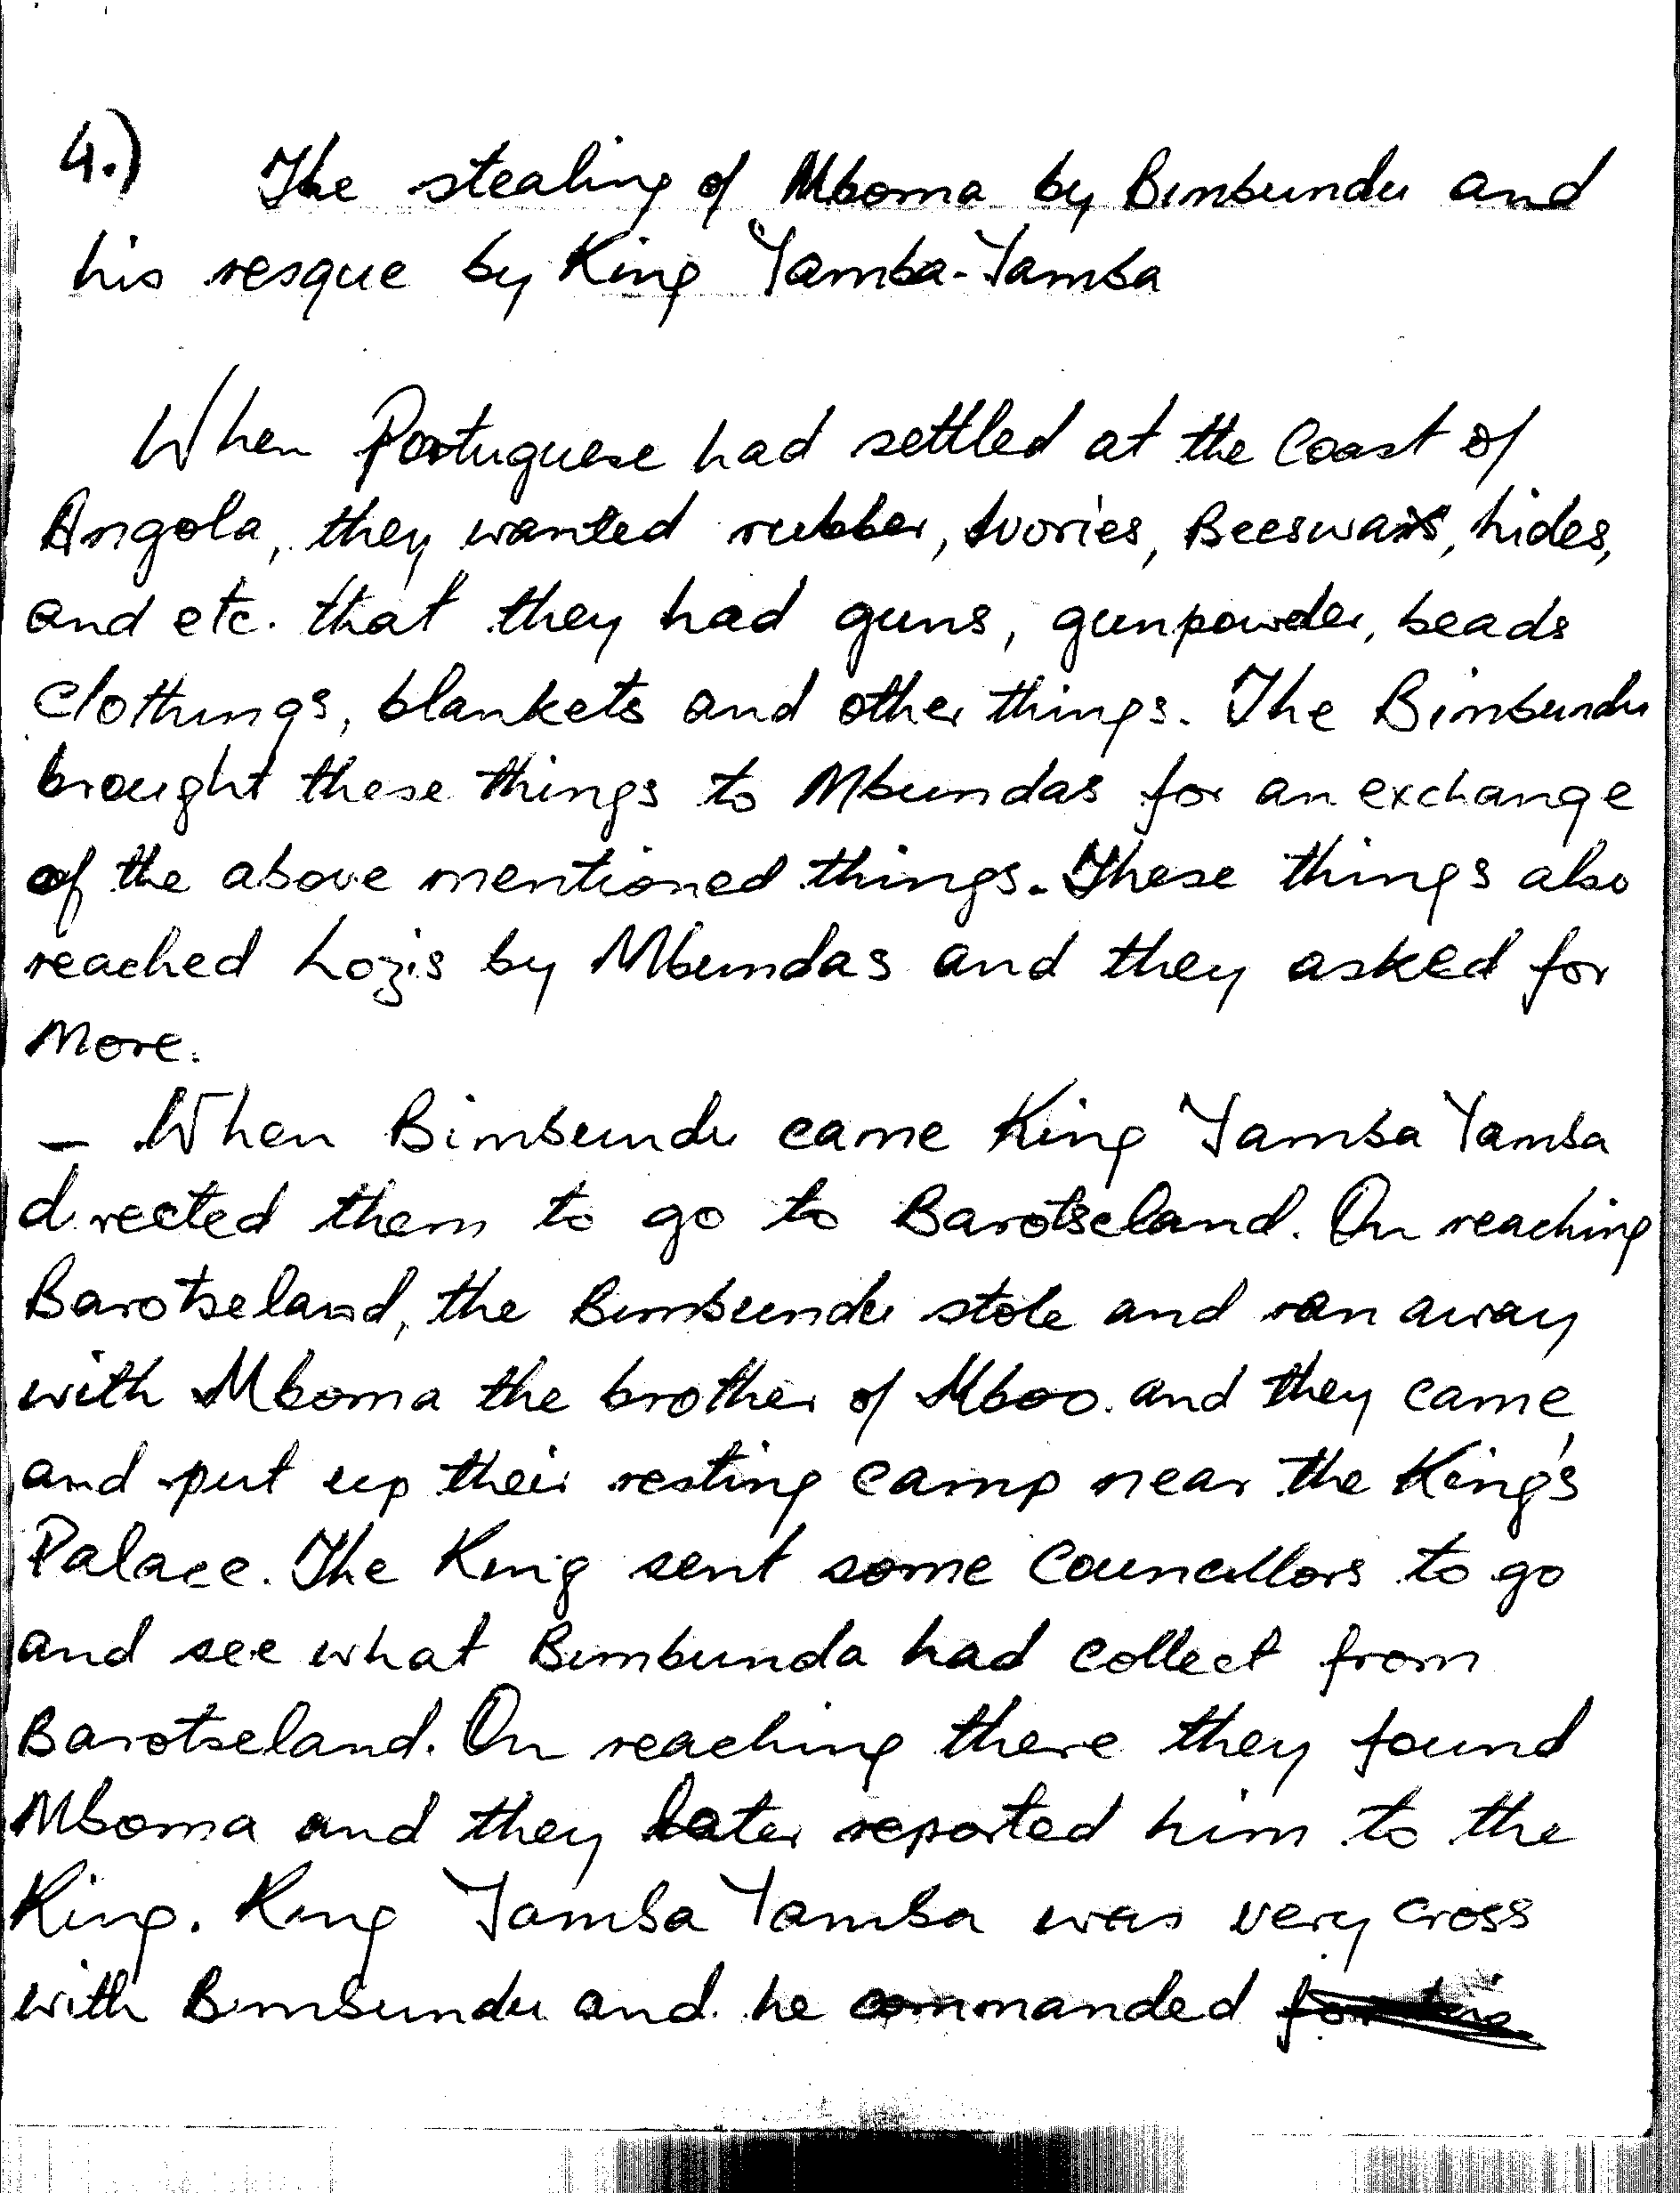 4.) The stealing of Mboma by Bimbundu and
his resque by King Yamba-Yamba
When Portuguese had settled at the Coast of
Angola, they wanted rubber, Ivories, Beeswax, hides,
and etc. that they had guns, gunpowder, beads
Clothings, blankets and other things. The Bimbundu
brought these things to Mbundas for an exchange
of the above mentioned things. These things also
reached Lozis by Mbundas and they asked for
More.
- When Bimbundu came King Yamba Yamba
directed them to go to Barotseland. On reaching
Barotseland, the Bimbundu stole and ran away
with Mboma the brother of Mboo. and they came
and put up their resting camp near the King's
Palace. The King sent some Councillors to go
and see what Bimbunda had collect from
Barotseland. On reaching there they found
Mboma and they later reported him to the
King. King Yamba Yamba was very cross
with Bimbundu and he commanded